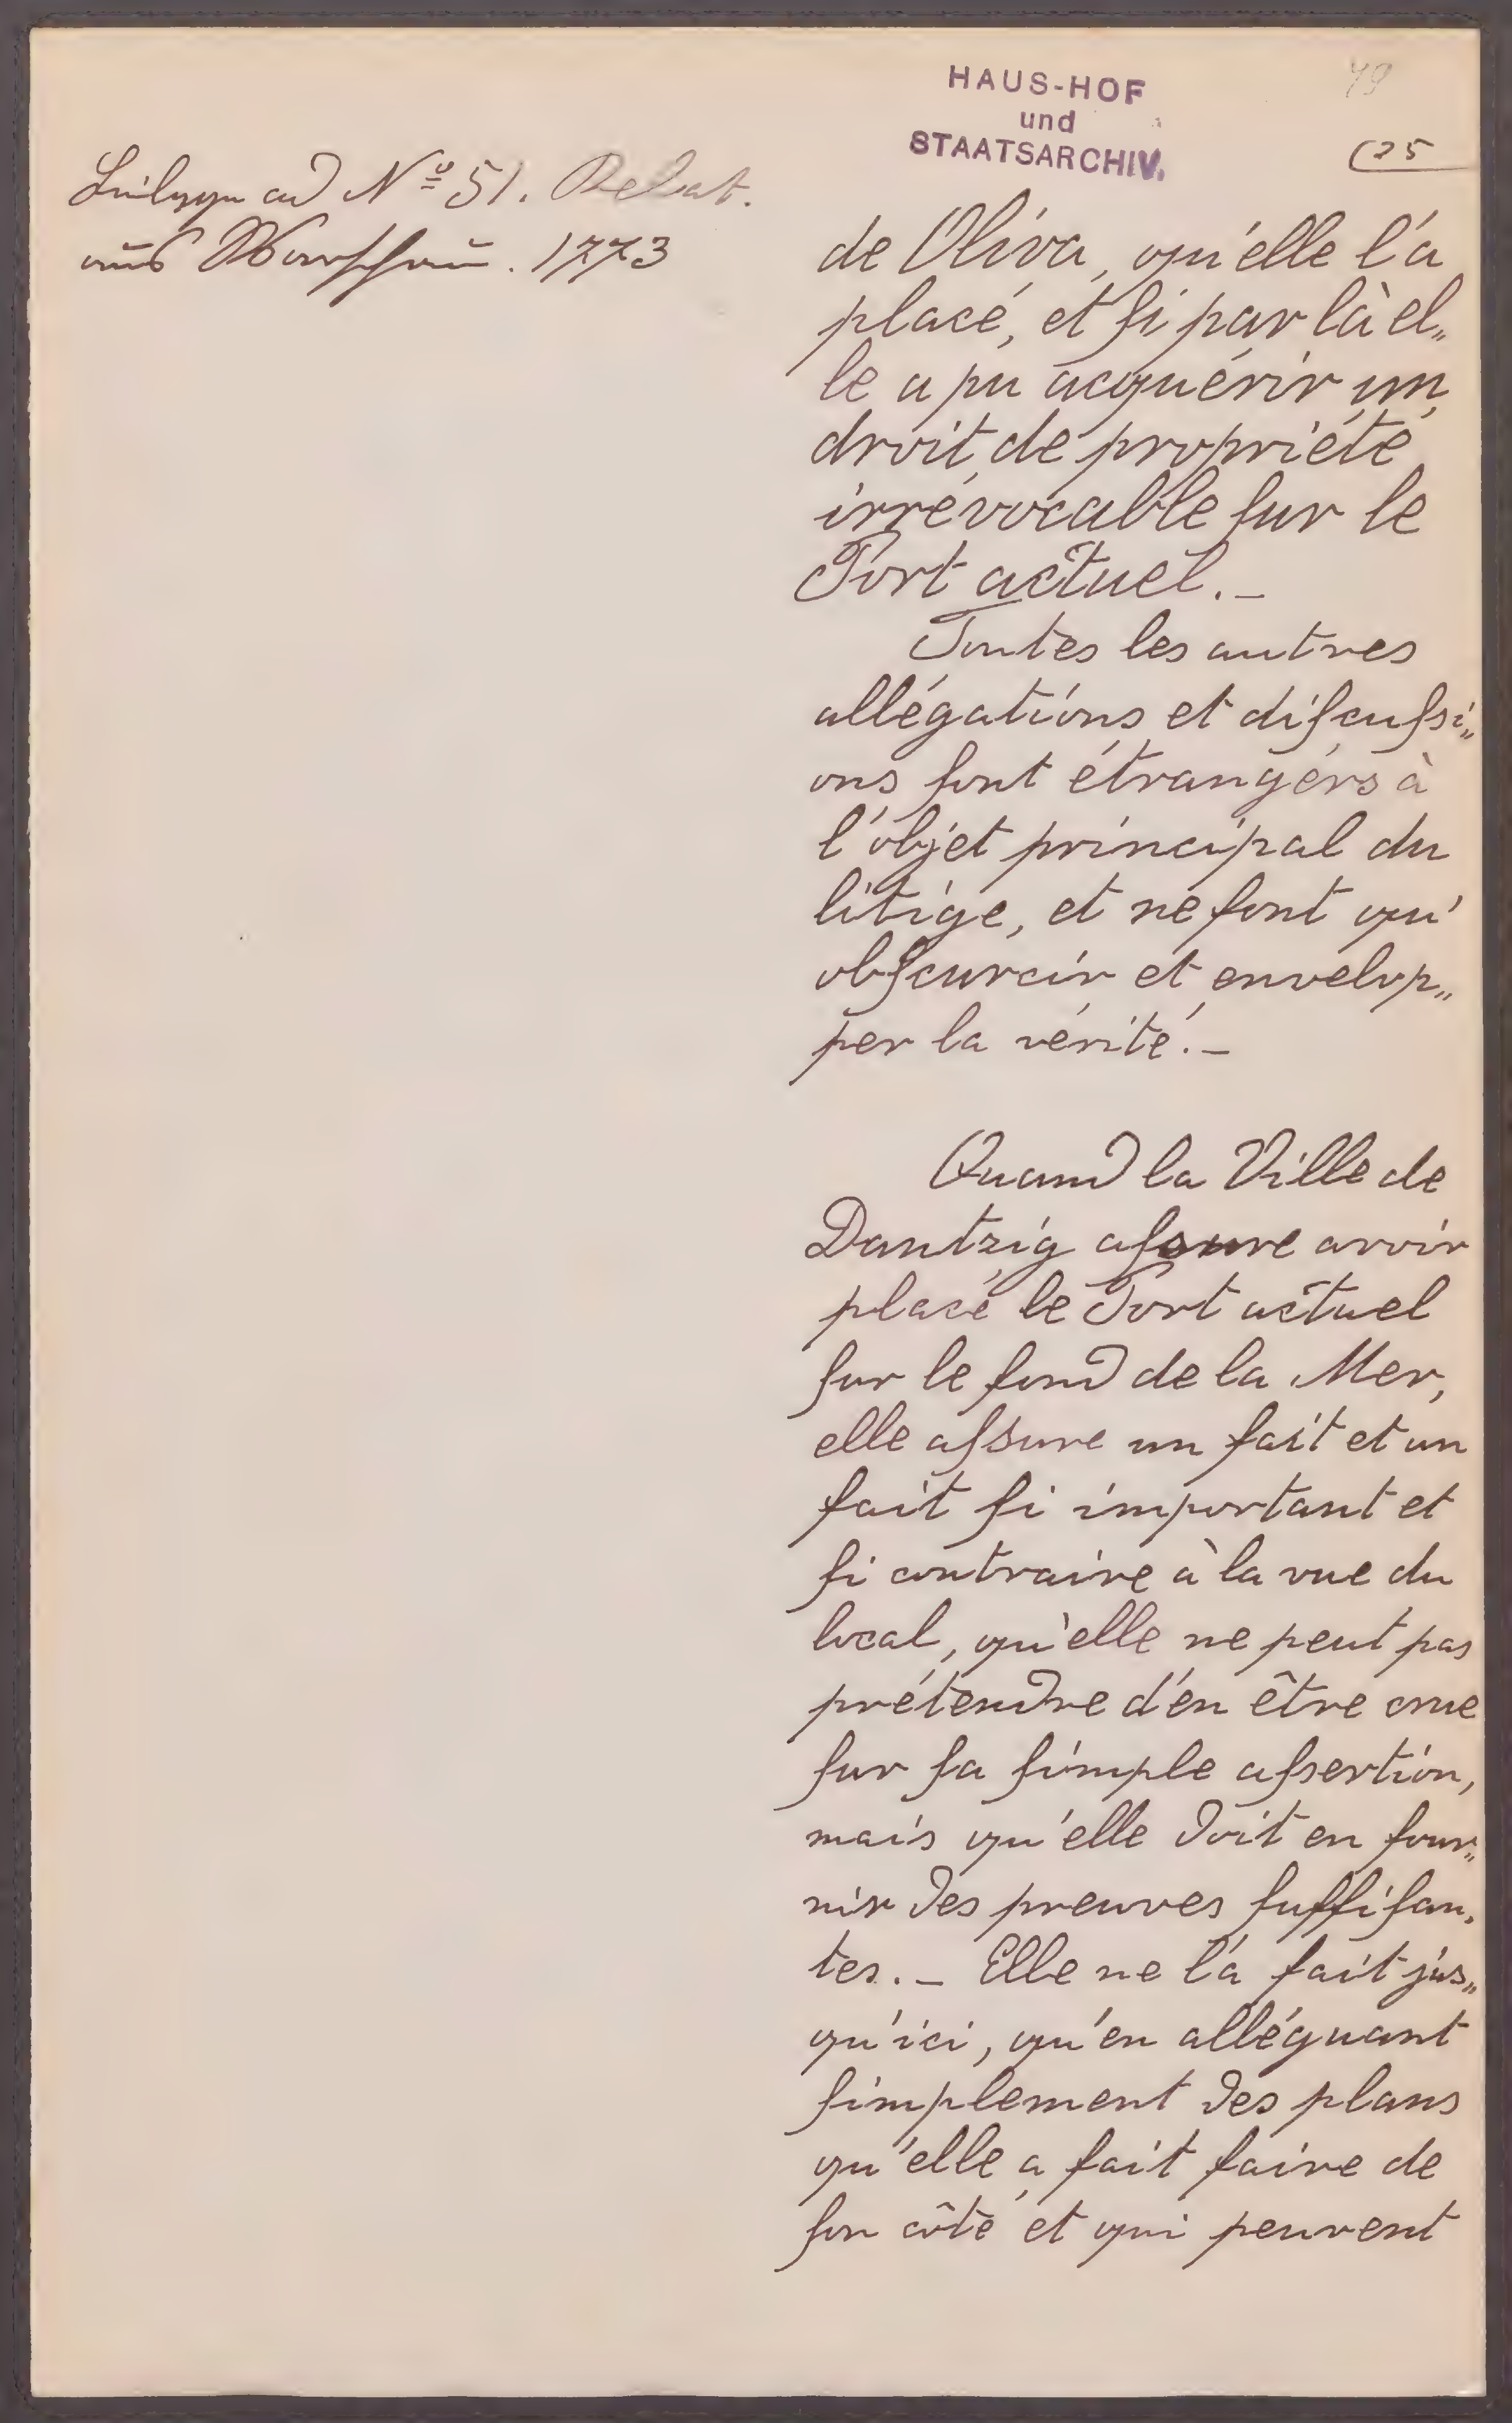 HAUS-HOF
und
STAATSARCHIV.
49
(25
Beilagen ad Nº 51. Relat.
aus Warschau. 1773
de Oliva, qu'elle l'a
placé, et si par là el„
le a pu acquérir un
droit de propriété
irrévocable sur le
Port actuel. _
Toutes les autres
allégations et discussi„
ons sont étrangérs à
l'objet principal du
litige, et ne font qu'
obscurcir et envelop„
per la vérité. _
Quand la Ville de
Dantzig assure avoir
placé le Port actuel
sur le fond de la Mer,
elle assure un fait et un
fait si important et
si contraire à la vue du
local, qu'elle ne peut pas
prétendre d'en être crue
sur sa simple assertion,
mais qu'elle doit en four„
nir des preuves suffisan„
tes. _ Elle ne l'a fait jus„
qu'ici, qu'en alléguant
simplement des plans
qu'elle a fait faire de
son côté et qui peuvent